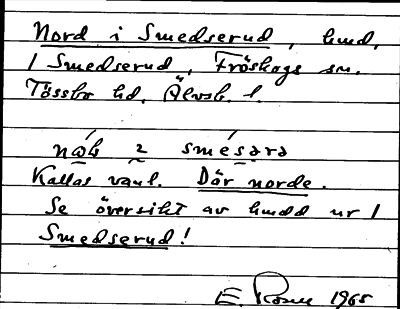 Nord i Smedserud, hmd,
1 Smedserud, Fröskogs sn.
Tössbo hd, Älvsb. l.
Kallas vanl. Där norde.
Se översikt av hmdd ur 1
Smedserud!
E. Rosén 1965